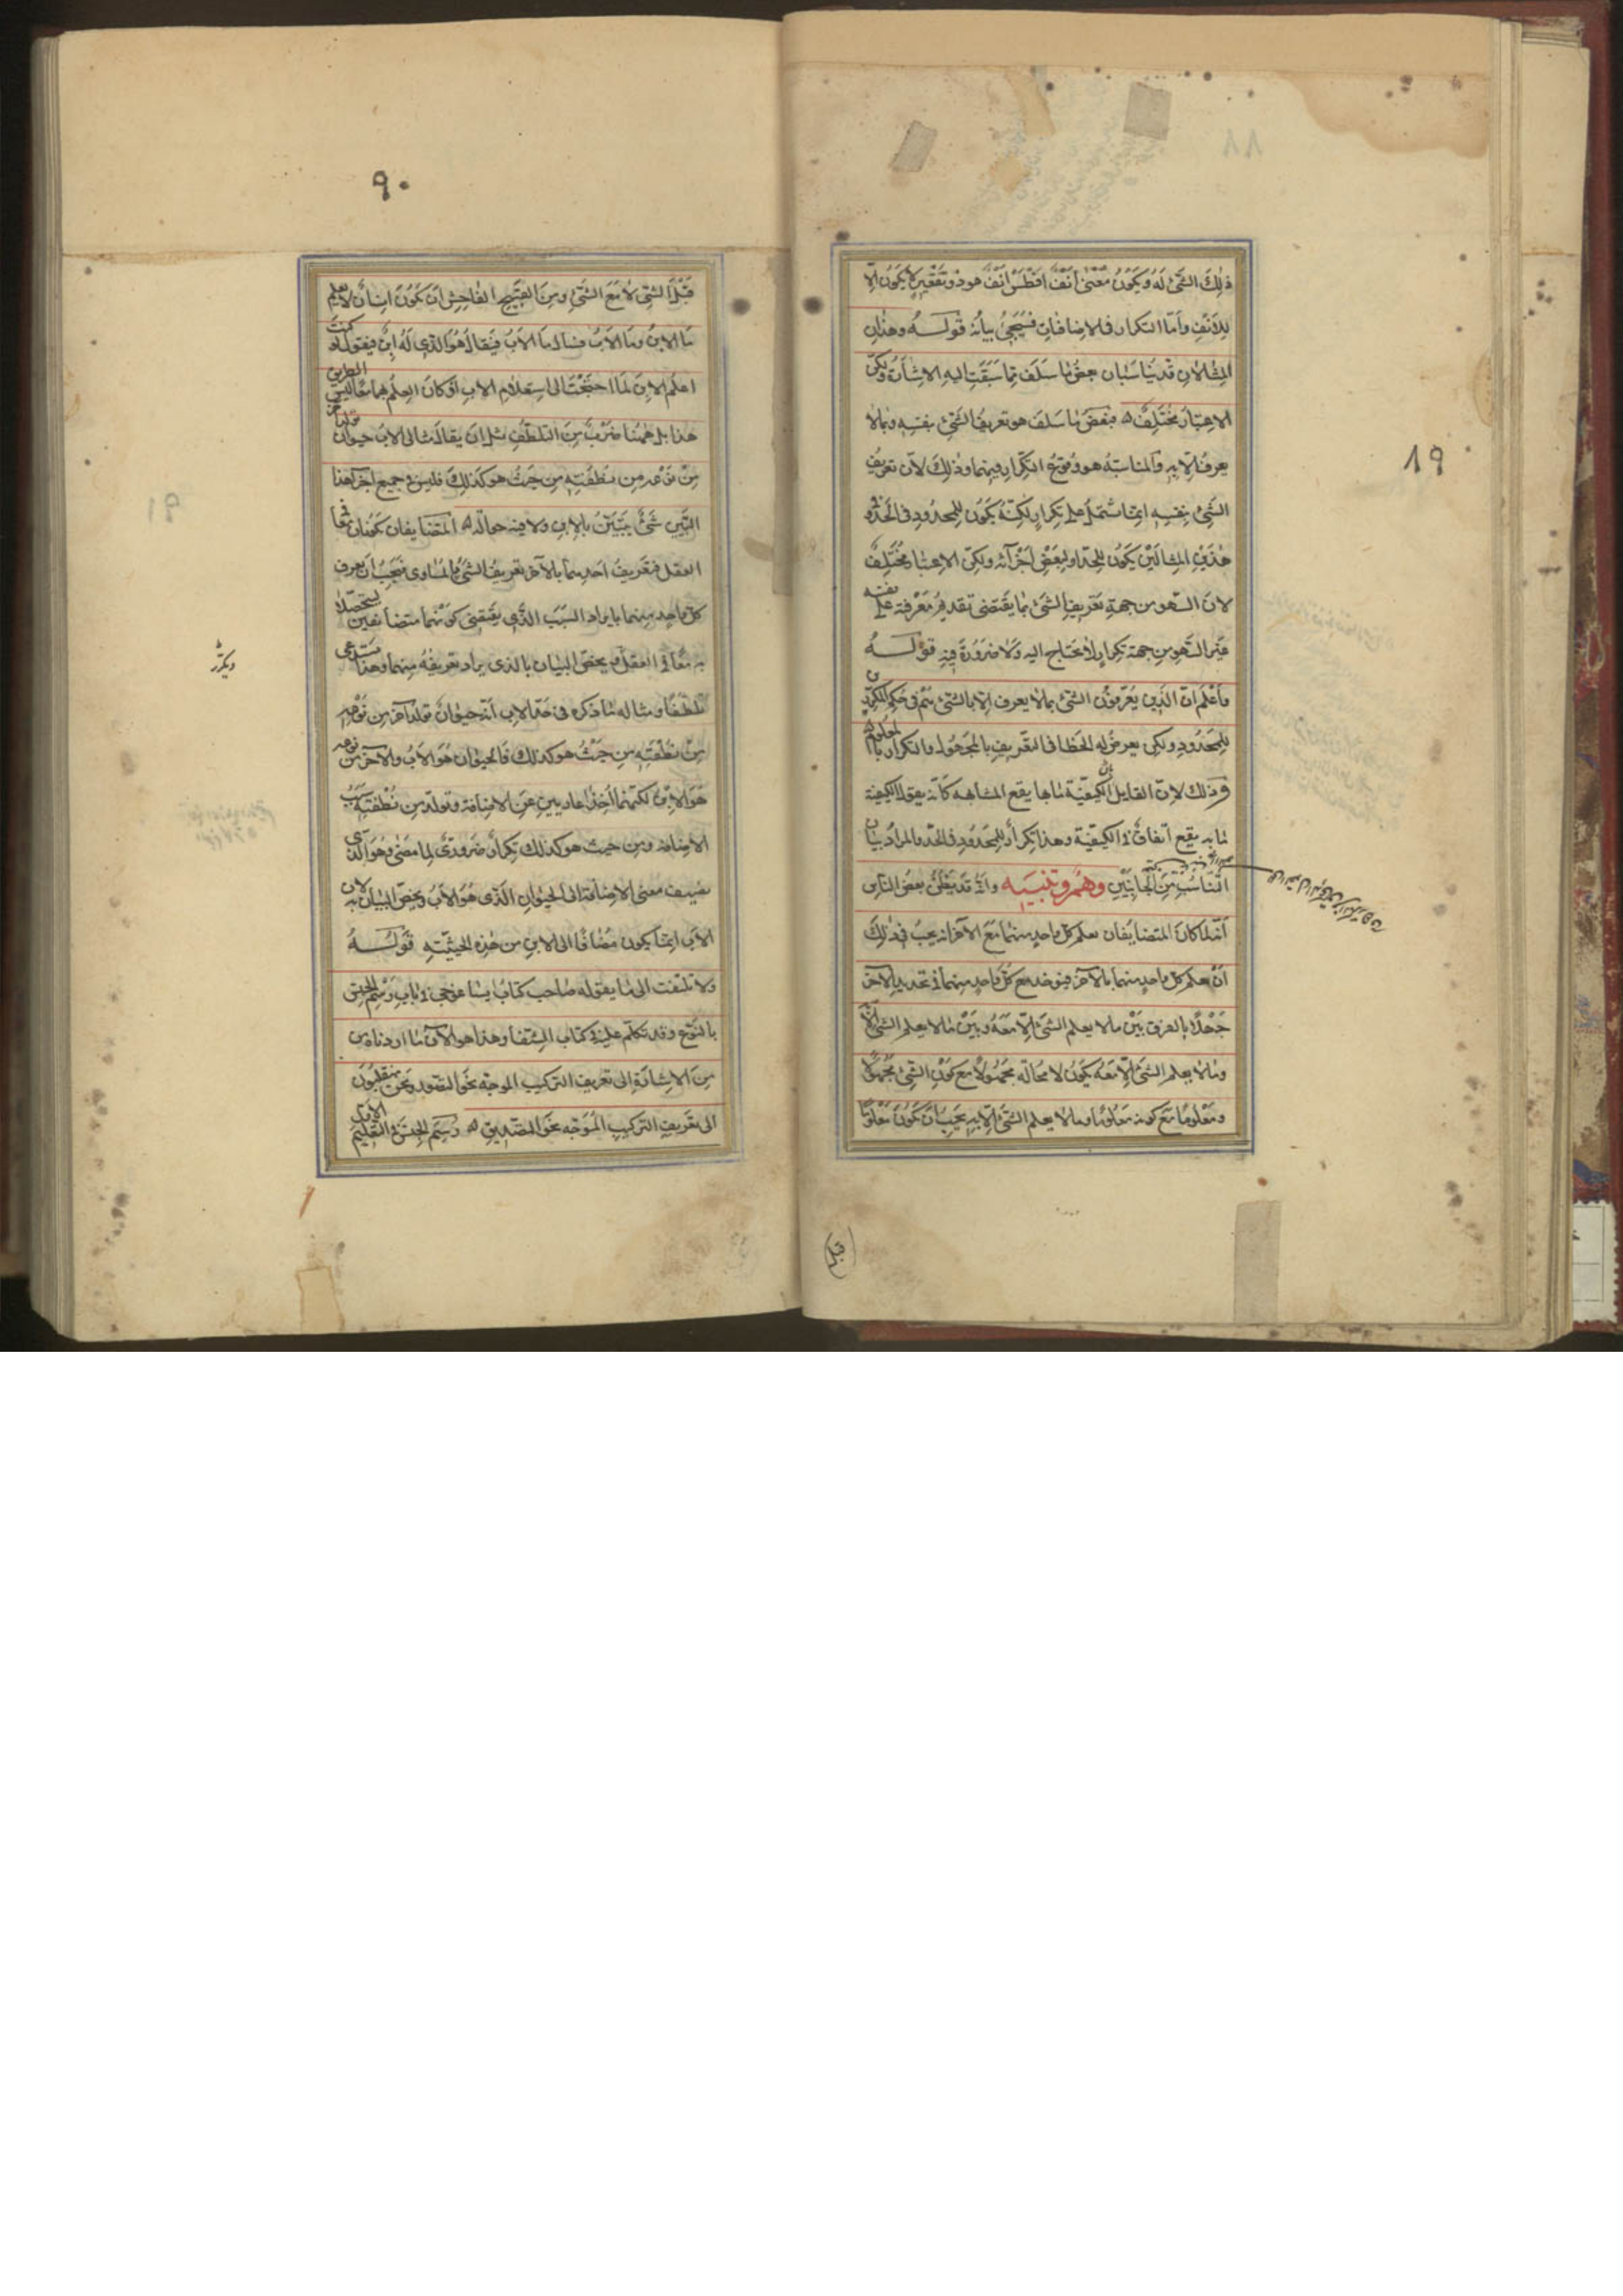 ٨٩
ذلك الشئ له ويكون معنى أنف افطس أنف هو ذو تقعير لا يكون الا
للأنف وأما التكرار في الاضافات فيجئ بيانه قوله وهذان
المثالان قد يناسبان بعض ما سلف مما سبقت اليه الاشارة ولكن
الاعتبار مختلف بعض ما سلف هو تعريف الشئ بنفسه وبما لا
يعرف الا به والمناسبة هو وقوع التكرار فيهما وذلك لان تعريف
الشئ بنفسه ايضا يشتمل على تكرار لكنه يكون للمحدود في الحد وفي
هذين المثالين يكون للحد او لبعض أجزائه ولكن الاعتبار مختلف
لان السهو من جهة تعريف الشئ بما يقتضى تقديم معرفته على نفسه
غير السهو من جهة تكرار لا يحتاج اليه ولا ضرورة فيه قوله
واعلم ان الذين يعرفون الشئ بما لا يعرف الا بالشئ هم في حكم المكررين
للمحدود ولكن يعرض له الخطا في التعريف بالمجهول والتكرار بالمعلوم
وذلك لان القايل الكيفية ما بها يقع المشابهة كانه يقول الكيفية
ما به يقع اتفاق في الكيفية وهذا تكرار للمحدود في الحد والمراد بيان
التناسب من الجانبين وهم وتنبيه وانه قد يظن بعض الناس
أنه لما كان المتضايفان يعلم كل واحد منهما مع الآخر انه يجب في ذلك
أن يعلم كل واحد منهما بالآخر فيؤخذ كل واحد منهما في تحديد الآخر
جهلا بالفرق بين ما لا يعلم الشئ الا معه وبين ما لا يعلم الشئ الا به
وما لا يعلم الشئ الا معه يكون لا محالة مجهولا مع كون الشئ مجهولا
ومعلوما مع كونه معلوما وما لا يعلم الشئ الا به يجب أن يكون معلوما
٩٠
قبل الشئ لا مع الشئ ومن القبيح الفاحش ان يكون انسان لا يعلم
ما الابن وما الاب فيسال ما الاب فيقال هو الذي له ابن فيقول لو كنت
اعلم الابن لما احتجت الى استعلام الاب اذ كان العلم بهما معا ليس الطريق
هذا بل ههنا ضرب من التلطف مثل ان يقال مثلا الاب حيوان يولد آخر
من نوعه من نطفته من حيث هو كذلك فليس في جميع اجزاء هذا
التبيين شئ يتبين بالابن ولا فيه حوالة المتضايفان يكونان معا في
العقل فتعريف احدهما بالآخر تعريف الشئ بالمساوى فيجب ان يعرف
كل واحد منهما بايراد السبب الذي يقتضى كونهما متضايفين ليتحصلا
به معا في العقل ثم يخص البيان بالذي يراد تعريفه منهما وهذا يستدعى
تلطفا ومثاله ما ذكره في حد الاب أنه حيوان يولد آخر من نوعه
من نطفته من حيث هو كذلك فالحيوان هو الاب والآخر من نوعه
هو الابن لكنهما أخذا عاريين عن الاضافة وتولد من نطفته سبب
الاضافة ومن حيث هو كذلك تكرار ضرورى لما مضى وهو الذى
يضيف معنى الاضافة الى الحيوان الذى هو الاب ويخص البيان به لان
الاب انما يكون مضافا الى الابن من هذه الحيثية قوله
ولا تلتفت الى ما يقوله صاحب كتاب ايساغوجى في باب رسم الجنس
بالنوع وقد تكلم عليه في كتاب الشفا وهذا هو الآن ما اردناه من
من الاشارة الى تعريف التركيب الموجه نحو التصور ونحن منتقلون
الى تعريف التركيب الموجه نحو التصديق رسم الجنس في التعليم الاول